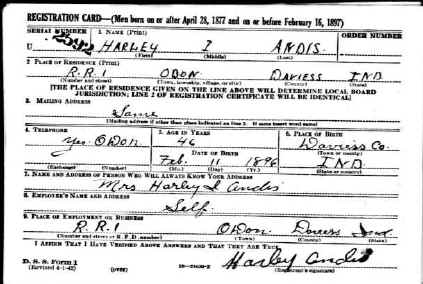 REGISTRATION CARD—(Men born on or after April 28, 1877 and on or before February 16, 1897)
SERIAL NUMBER 1. NAME (Print) ORDER NUMBER
U HARLEY I ANDIS
(First) (Middle) (Last)
2. PLACE OF RESIDENCE (Print)
R.R.1 ODON DAVIESS IND
(Number and street) (Town, township, village, or city) (County) (State)
[THE PLACE OF RESIDENCE GIVEN ON THE LINE ABOVE WILL DETERMINE LOCAL BOARD
JURISDICTION; LINE 2 OF REGISTRATION CERTIFICATE WILL BE IDENTICAL]
3. MAILING ADDRESS
Same
[Mailing address if other than place indicated on line 2. If same insert word same]
4. TELEPHONE 5. AGE IN YEARS 6. PLACE OF BIRTH
Yes. Odon 46 Daviess Co.
DATE OF BIRTH (Town or county)
Feb. 11 1896 IND.
(Exchange) (Number) (Mo.) (Day) (Yr.) (State or country)
7. NAME AND ADDRESS OF PERSON WHO WILL ALWAYS KNOW YOUR ADDRESS
Mrs Harley I Andis
8. EMPLOYER'S NAME AND ADDRESS
Self
9. PLACE OF EMPLOYMENT OR BUSINESS
R.R.1 Odon Daviess Ind
(Number and street or R. F. D. number) (Town) (County) (State)
I AFFIRM THAT I HAVE VERIFIED ABOVE ANSWERS AND THAT THEY ARE TRUE.
D. S. S. Form 1
(Revised 4-1-42) (over) Harley Andis
(Registrant's signature)